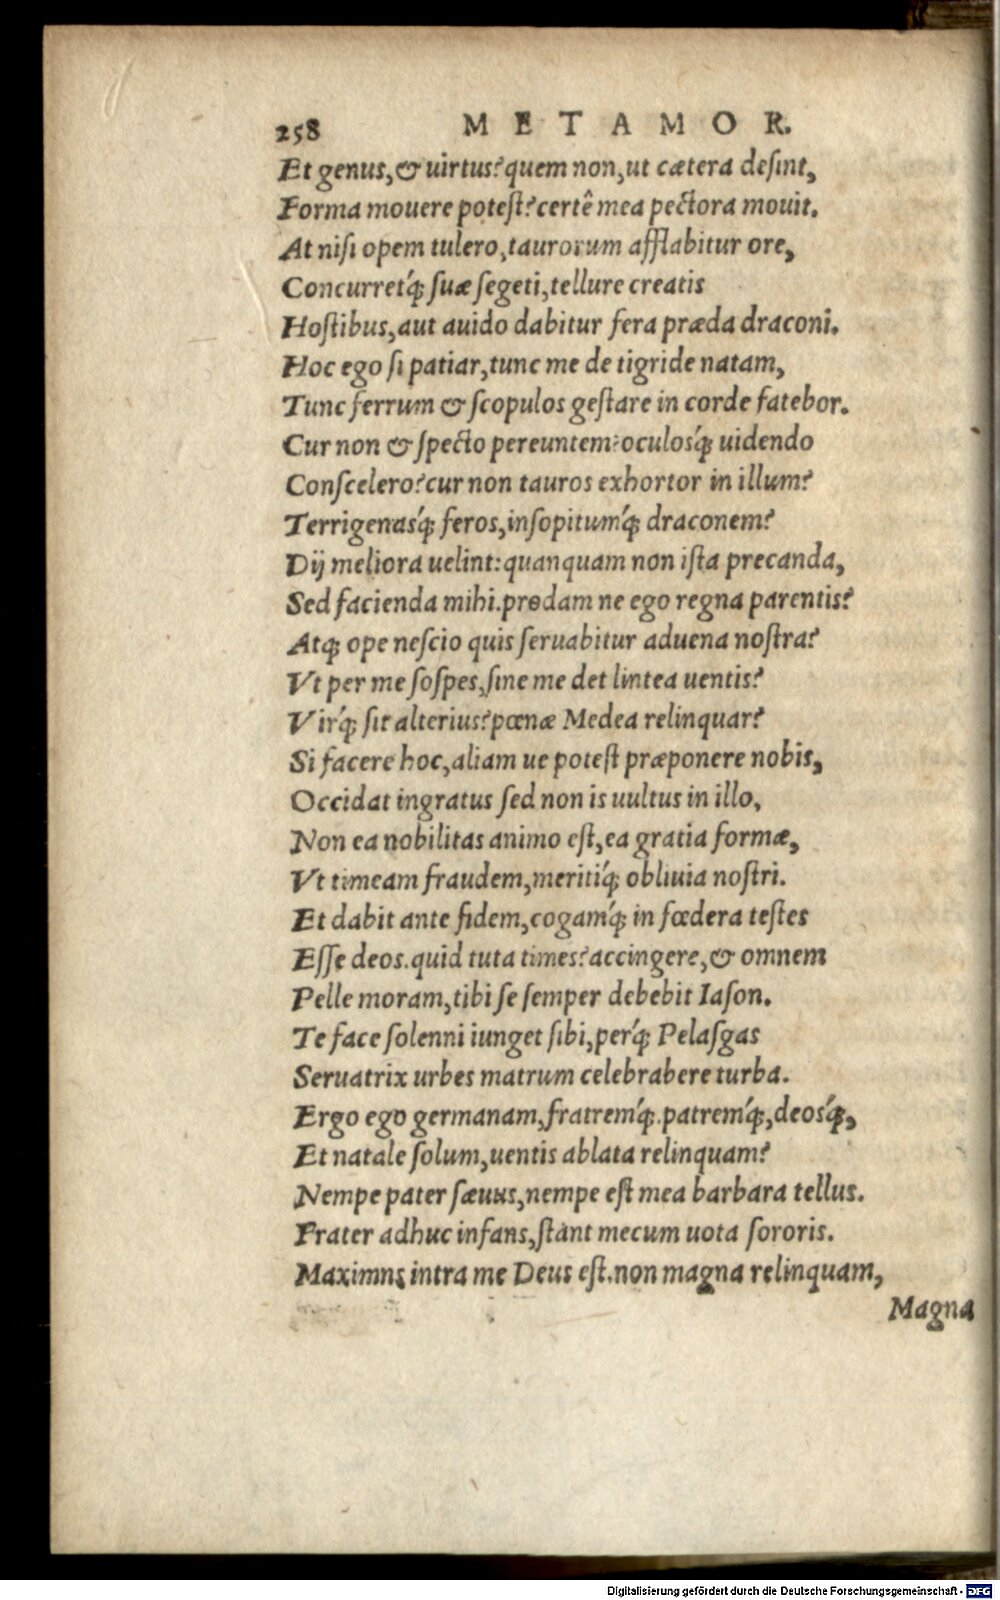 258 METAMOR.
Et genus,& uirtus? quem non,ut cætera desint,
Forma mouere potest? certê mea pectora mouit.
At nisi opem tulero,taurorum afflabitur ore,
Concurretq́; suæ segeti,tellure creatis
Hostibus,aut auido dabitur fera præda draconi.
Hoc ego si patiar,tunc me de tigride natam,
Tunc ferrum & scopulos gestare in corde fatebor.
Cur non & specto pereuntem? oculosq́; uidendo
Conscelero? cur non tauros exhortor in illum?
Terrigenasq́; feros,insopitumq́; draconem?
Dij meliora uelint: quanquam non ista precanda,
Sed facienda mihi. prodam ne ego regna parentis?
Atq; ope nescio quis seruabitur aduena nostra?
Vt per me sospes,sine me det lintea uentis?
Virq́; sit alterius? pœnæ Medea relinquar?
Si facere hoc,aliam ue potest præponere nobis,
Occidat ingratus sed non is uultus in illo,
Non ea nobilitas animo est,ea gratia formæ,
Vt timeam fraudem,meritiq́; obliuia nostri.
Et dabit ante fidem,cogamq́; in fœdera testes
Esse deos.quid tuta times? accingere,& omnem
Pelle moram,tibi se semper debebit Iason.
Te face solenni iunget sibi,perq́; Pelasgas
Seruatrix urbes matrum celebrabere turba.
Ergo ego germanam,fratremq́;,patremq́;,deosq́;,
Et natale solum,uentis ablata relinquam?
Nempe pater sæuus,nempe est mea barbara tellus.
Frater adhuc infans,stant mecum uota sororis.
Maximns intra me Deus est.non magna relinquam,
Magna
Digitalisierung gefördert durch die Deutsche Forschungsgemeinschaft - DFG